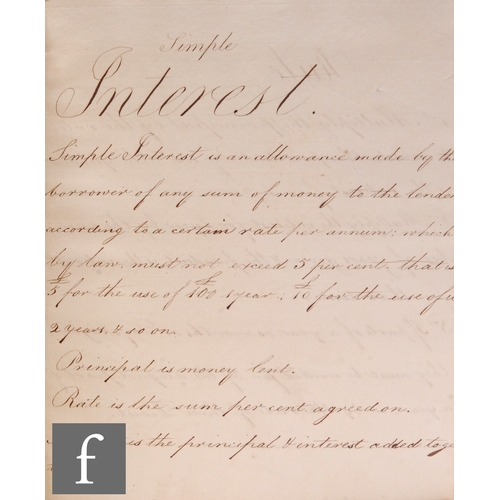 Simple
Interest.
Simple Interest is an allowance made by th
borrower of any sum of money to the lender
according to a certain rate per annum: which
by law, must not exceed 5 per cent. that is
£5 for the use of £100 1 year, £10 for the use of
2 years, & so on.
Principal is money lent.
Rate is the sum per cent agreed on.
is the principal & interest added toge
f